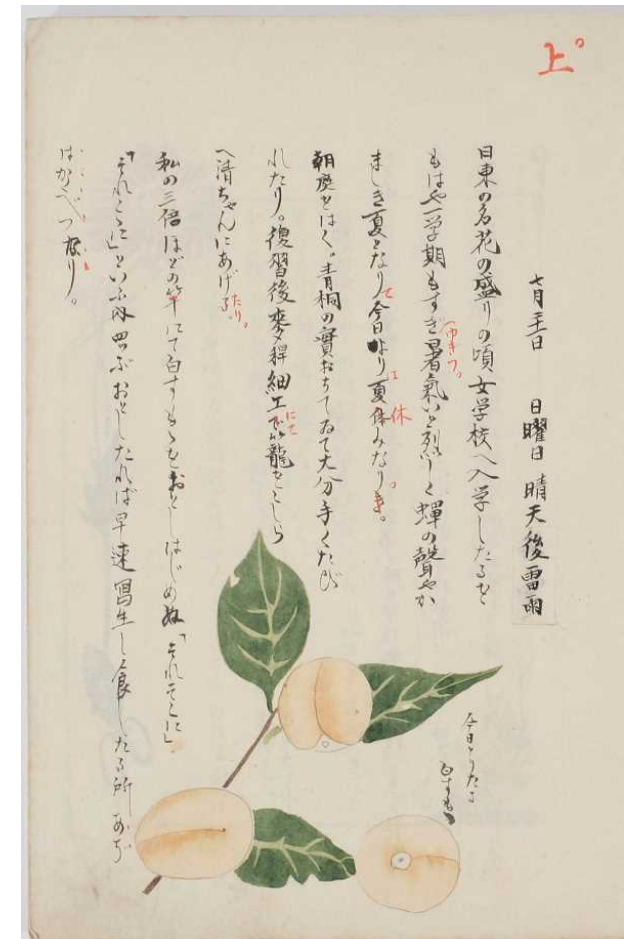 上。
七月二十一日 日曜日 晴天後雷雨
日東の名花の盛りの頃女学校へ入学したるも
もはや一学期もすぎ暑氣いと烈しく蟬の聲やか
ましき夏となりて今日より夏休みなりき。
は 休
朝庭をはく。青桐の實おちてゐて大分手くたび
れたり。復習後麥稈細工にて籠をこしら
へ清ちゃんにあげたり。
私の三倍ほどの竿にて白すもゝをおとしはじめぬ「それそこに」
「それこゝに」といふ内四つぶおとしたれば早速寫生し食したる所あぢ
はかくべつなり。
今日とりたる
白すもゝ